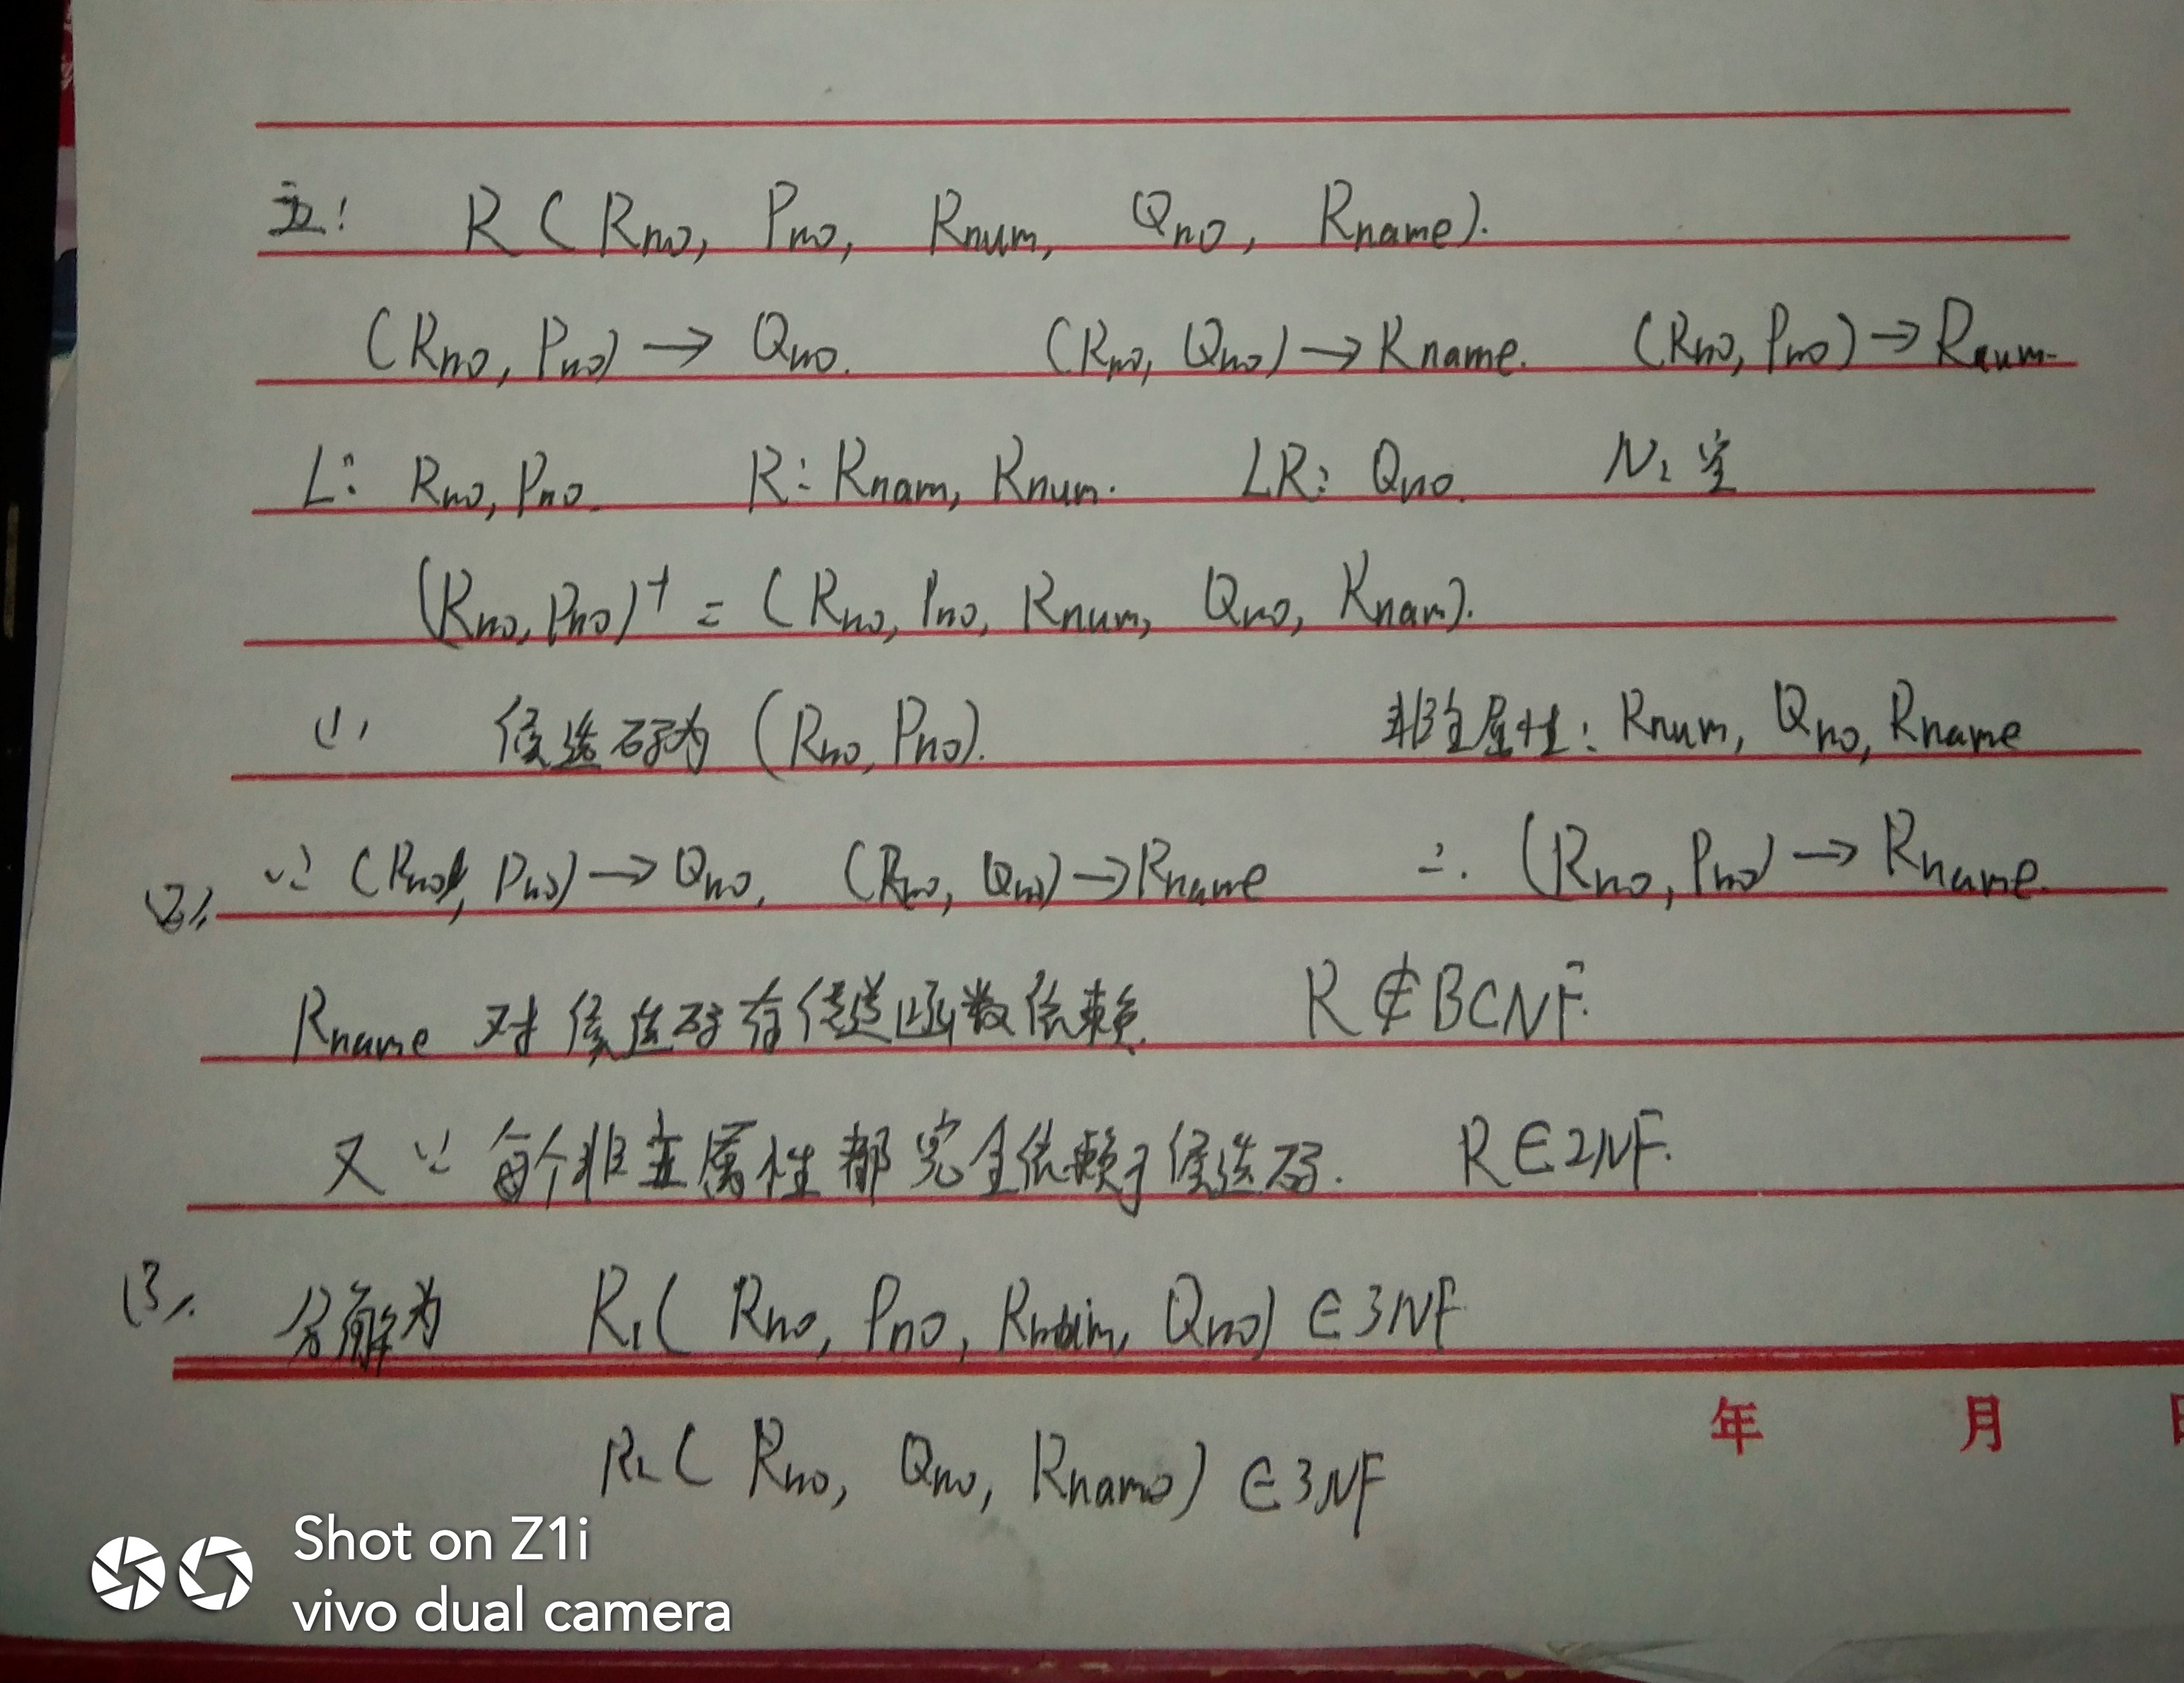 五: R ( Rno, Pno, Rnum, Qno, Rname).
(Rno, Pno) → Qno. (Rno, Qno) → Rname. (Rno, Pno) → Rnum.
L: Rno, Pno. R: Rnam, Rnum. LR: Qno. N: 空
(Rno, Pno)⁺ = ( Rno, Pno, Rnum, Qno, Rnam).
(1) 候选码为 (Rno, Pno). 非主属性: Rnum, Qno, Rname
(2). ∵ (Rno, Pno) → Qno, (Rno, Qno) → Rname ∴ (Rno, Pno) → Rname.
Rname 对候选码存传递函数依赖. R ∉ BCNF.
又 ∵ 每个非主属性都完全依赖于候选码. R ∈ 2NF.
(3). 分解为 R₁( Rno, Pno, Rnum, Qno) ∈ 3NF
年 月 日
R₂ ( Rno, Qno, Rname) ∈ 3NF
Shot on Z1i
vivo dual camera